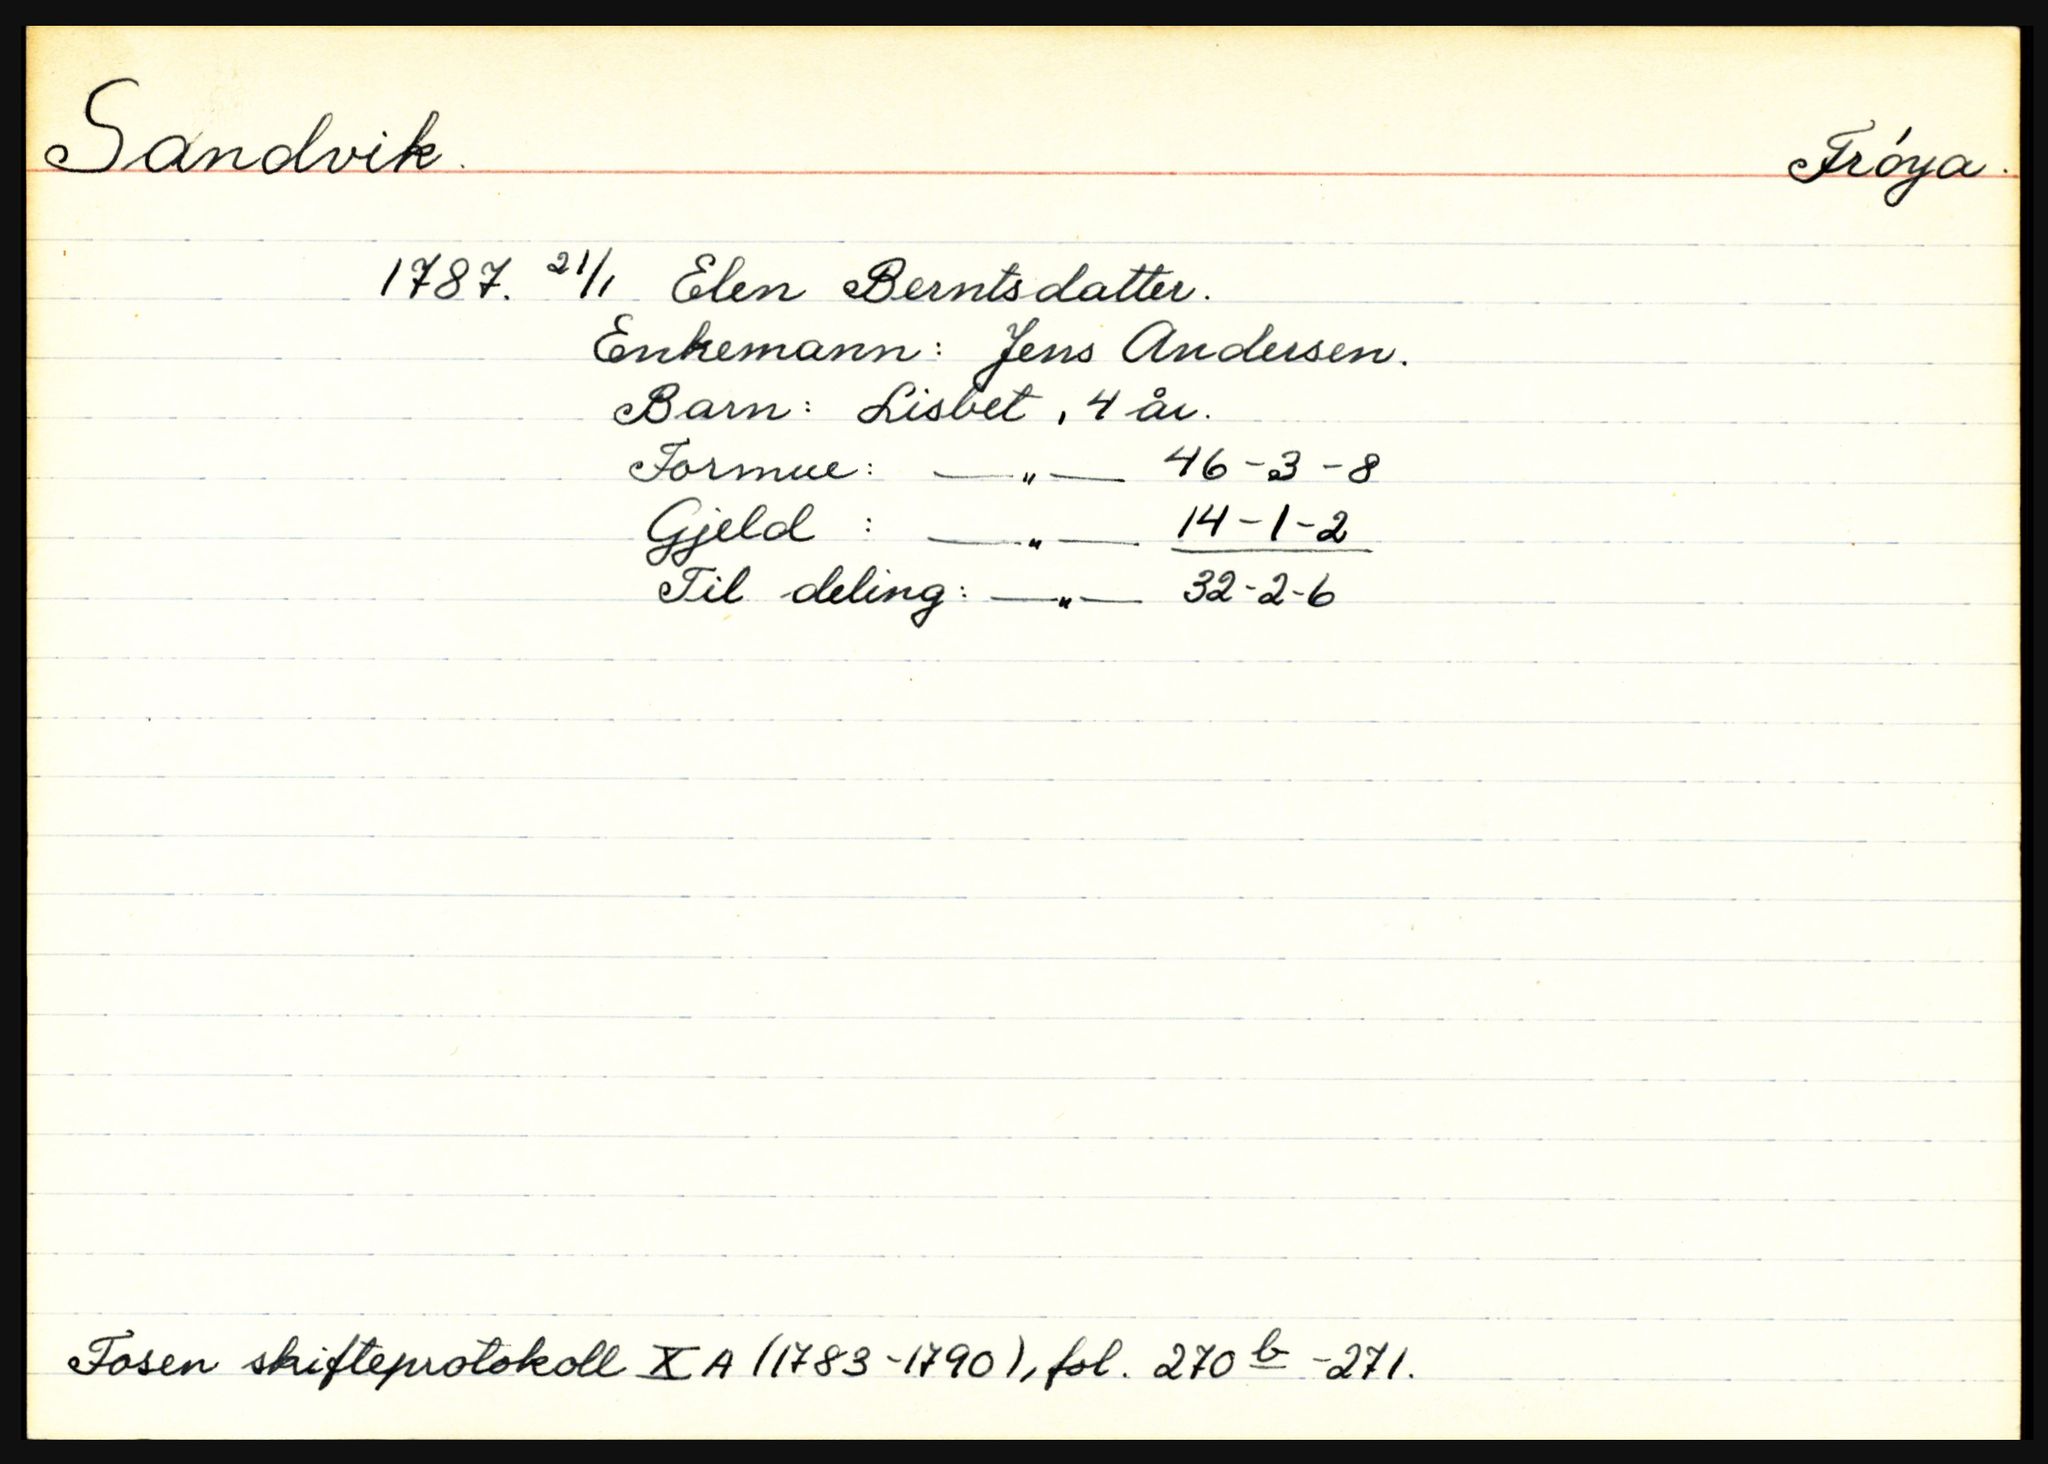 Sandvik. Fróya.
1787. 21/1 Elen Berntsdatter.
Enkemann: Jens Andersen.
Barn: Lisbet, 4 år.
Formue: —„— 46-3-8
Gjeld : —„— 14-1-2
Til deling: —„— 32-2-6
Fosen skifteprotokoll X A (1783-1790), fol. 270 b -271.